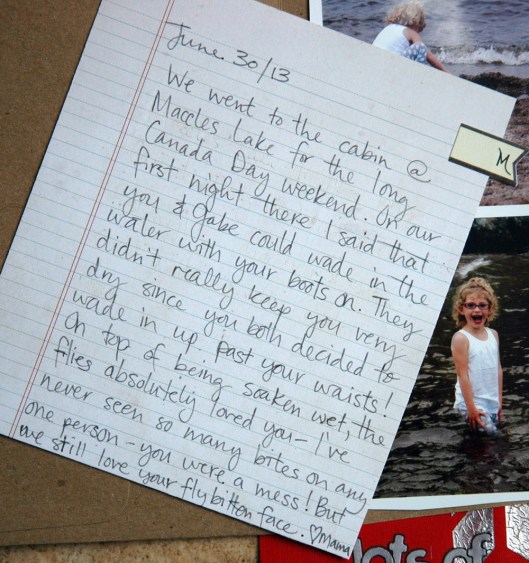 June 30/13
We went to the cabin @
Maccles Lake for the long
Canada Day weekend. On our
first night there I said that
you & Gabe could wade in the
water with your boots on. They
didn't really keep you very
dry since you both decided to
wade in up past your waists!
On top of being soaken wet, the
flies absolutely loved you - I've
never seen so many bites on any
one person - you were a mess! But
we still love your fly bitten face. ♡Mama
M
lots of